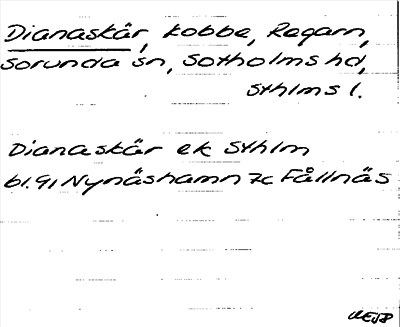 Dianaskär, kobbe, Regarn,
Sorunda sn, Sotholms hd,
Sthlms l.
Dianaskär ek Sthlm
bl. 91 Nynäshamn 7c Fållnäs